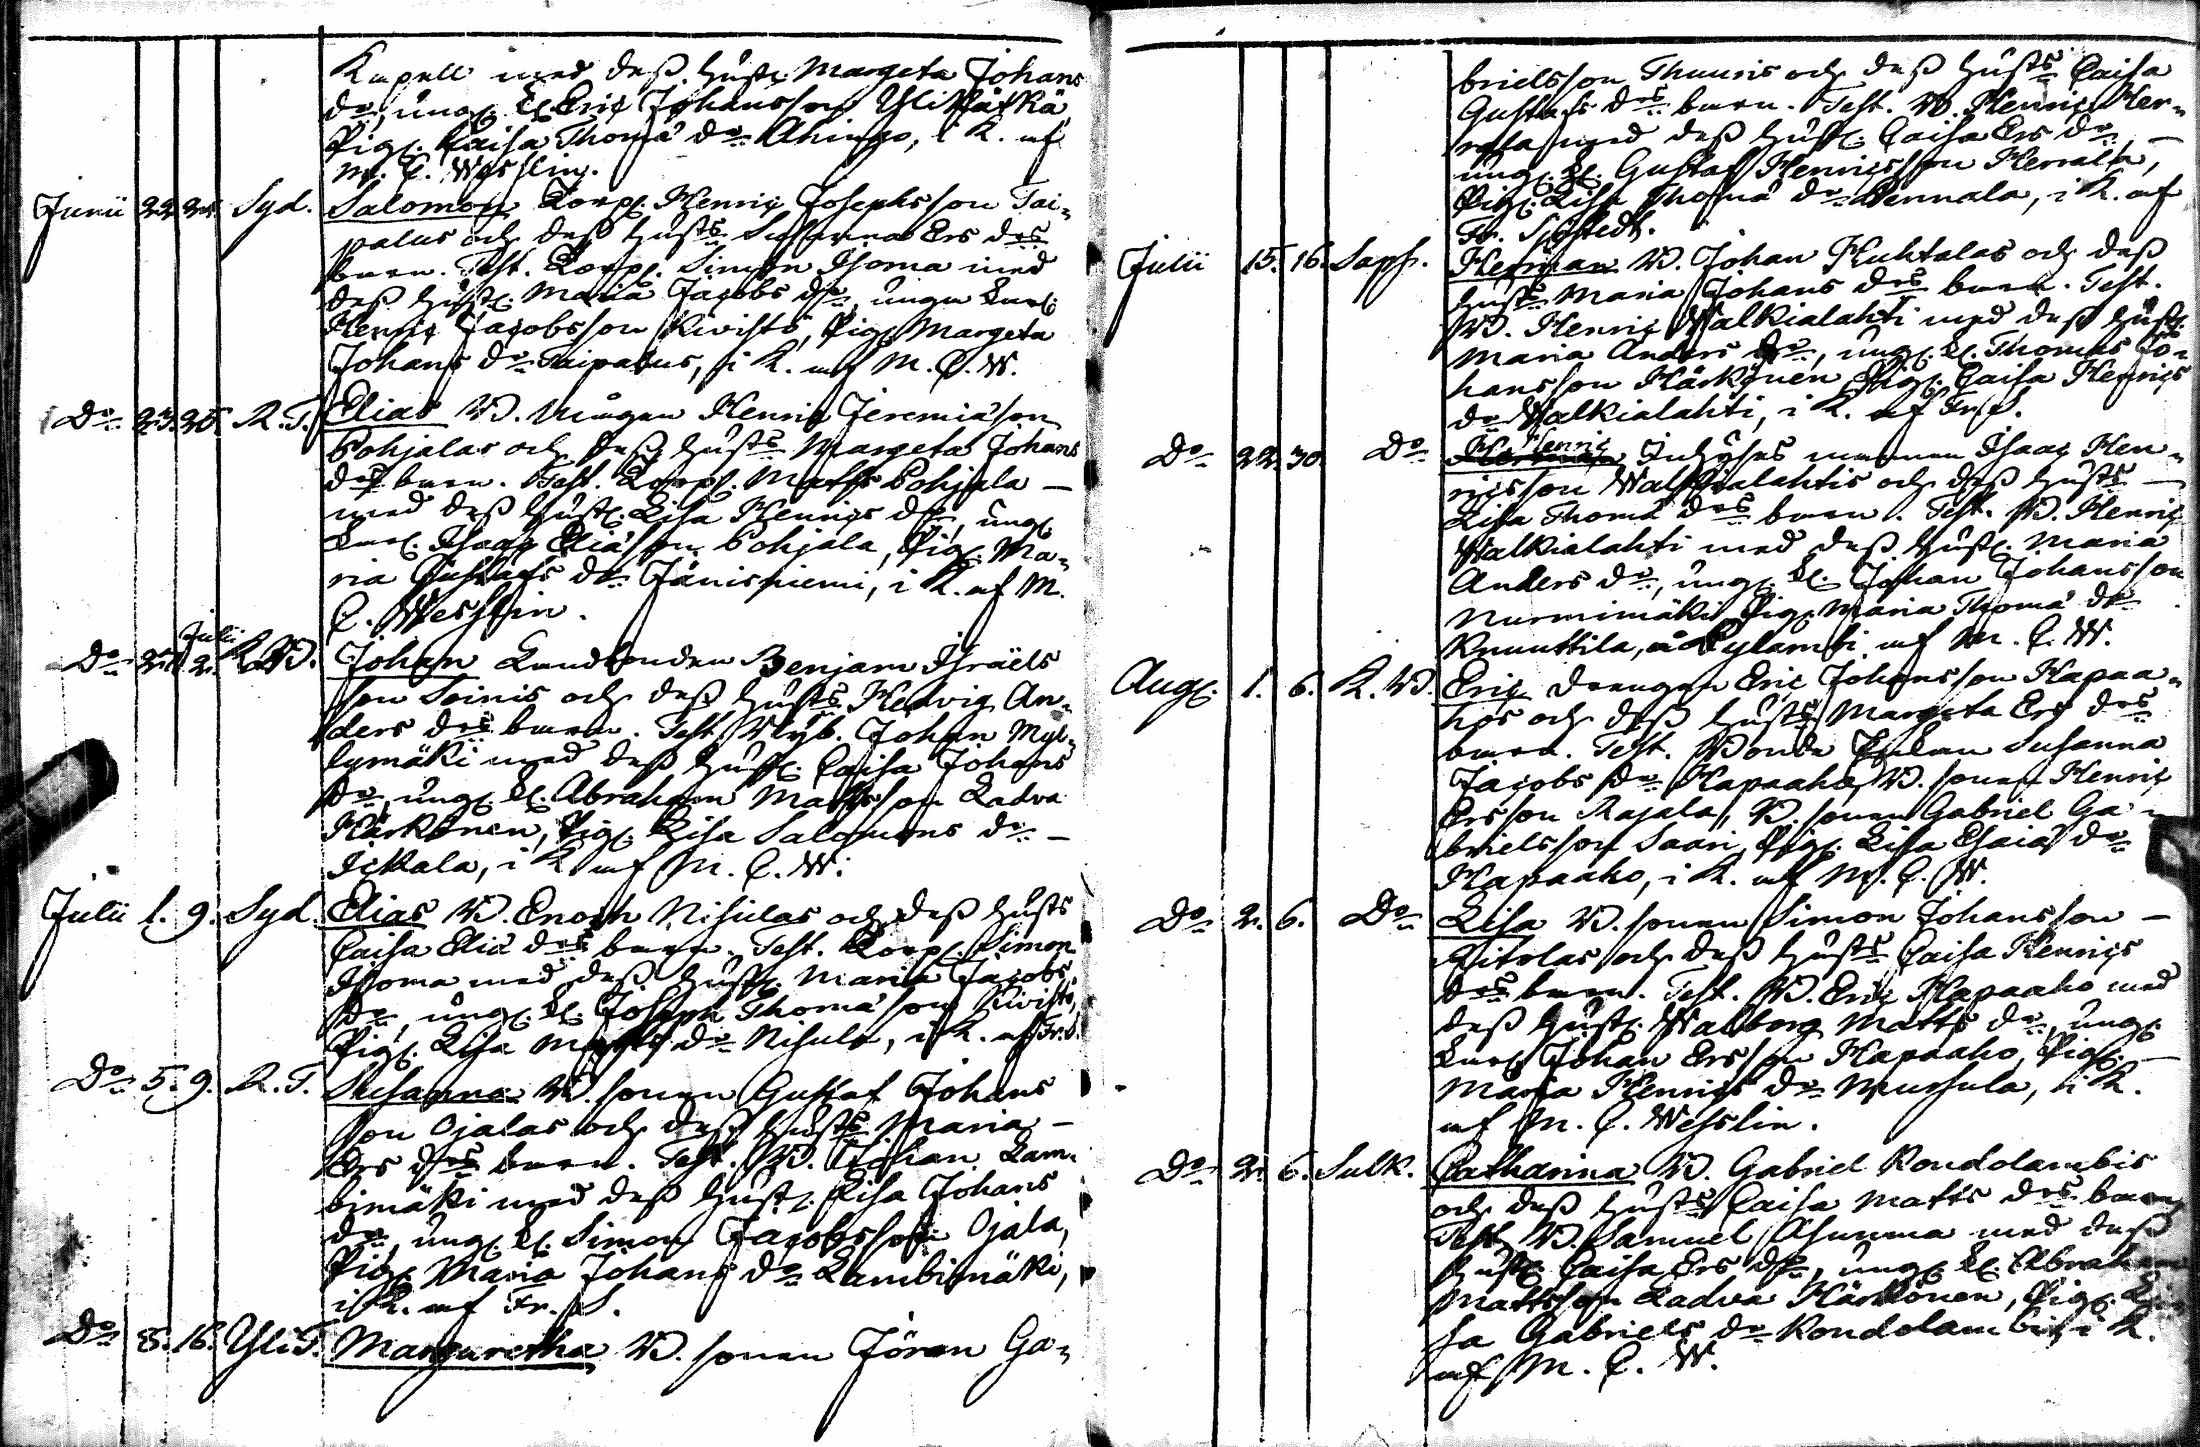 Kapell med deß hustr. Margeta Johans
dr, ung. k. Eric Johansson Ylikätkä,
Pig. Caisa Thomæ dr Ahingo, i K. af
M. C. Wesslin.
Junii 22. 24. Syd. Salomon Torpp. Henric Josephsson Tai-
palus och deß hustrs Susanna Ers drs
barn. Test. Torpp. Simon Isoma med
deß hustr. Maria Jacobs dr, unga Karl.
Henric Jacobsson Kivistö, Pig. Margeta
Johans dr Taipalus, i K. af M. C. W.
Do 23. 25. R. T. Elias B. mågen Henric Jeremiæson
Pohjalas och deß hustrs Margeta Johans
drs barn. Test. Torpp. Matts Pohjala
med deß hustr. Lisa Henrics dr, ung.
Karl. Isaac Eliæson Pohjala, Pig. Ma-
ria Gustafs dr Jänisniemi, i K. af M.
C. Wesslin.
Do Julii 2. K.B. Johan Landbonden Benjam Israëls
son Soinis och deß hustrs Hedvig An-
ders drs barn. Test. Nyb. Johan Myl-
lymäki med deß hustr. Caisa Johans
dr, ung. k. Abraham Mattsson Ladva
Härkönen, Pig. Lisa Salomons dr
Ickala, i K. af M. C. W.
Julii 1. 9. Syd. Elias B. Enoch Nisulas och deß hustrs
Caisa Eliæ drs barn. Test. Torpp. Simon
Isoma med deß hustr. Maria Jacobs
dr, ung. k. Joseph Thomæson Kivistö,
Pig. Lisa Matts dr Nisula, i K. af Fr. S.
Do 5. 9. R. T. Susanna B. sonen Gustaf Johans
son Ojalas och deß hustrs Maria
Ers drs barn. Test. B. Johan Lam-
bimäki med deß hustr. Lisa Johans
dr, ung. k. Simon Jacobsson Ojala,
Pig. Maria Johans dr Lambimäki,
i K. af Fr. S.
Do 8. 16. Yli T. Margaretha B. sonen Jöran Ga-
brielsson Thuuris och deß hustrs Caisa
Gustafs drs barn. Test. B. Henric Her-
rala med deß hustr. Caisa Ers dr,
ung. k. Gustaf Henricsson Herrala,
Pig. Lisa Thomæ dr Pennala, i K. af
Fr. Sjöstedt.
Julii 15. 16. Saps. Herman B. Johan Huhtalas och deß
hustrs Maria Johans drs barn. Test.
B. Henric Walkialahti med deß hustr.
Maria Anders dr, ung. k. Thomas Jo-
hansson Härkönen Pig. Caisa Henrics
dr Walkialahti, i K. af Fr. S.
Do 22. 30. Do Henric Inhyses mannen Isaac Hen-
ricsson Walkialahtis och deß hustrs
Lisa Thomæ drs barn. Test. B. Henric
Walkialahti med deß hustr. Maria
Anders dr, ung. k. Johan Johansson
Nurmimäki Pig. Maria Thomæ dr
Knuuttila, å Pylambi af M. C. W.
Aug. 1. 6. K. B. Eric Drengen Eric Johansson Hapaa-
hos och deß hustrs Margeta Ers drs
barn. Test. Bonde Enkan Susanna
Jacobs dr Hapaaho, B. sonen Henric
Ersson Rajala, B. sonen Gabriel Ga-
brielsson Saari, Pig. Lisa Esaiæ dr
Hapaaho, i K. af M. C. W.
Do 2. 6. Do Lisa B. sonen Simon Johansson
Aitolas och deß hustrs Caisa Henrics
drs barn. Test. B. Eric Hapaaho med
deß hustr. Walborg Matts dr, ung.
Karl. Johan Ersson Hapaaho, Pig.
Maria Henrics dr Mursula, i K.
af M. C. Wesslin.
Do 2. 6. Sulk. Catharina B. Gabriel Kondolambis
och deß hustrs Caisa Matts drs barn
Test. B. Samuel Asunma med deß
hustr. Caisa Ers dr, ung. k. Abraham
Mattsson Ladva Härkönen, Pig. Cai
sa Gabriels dr Kondolambi, i K.
af M. C. W.